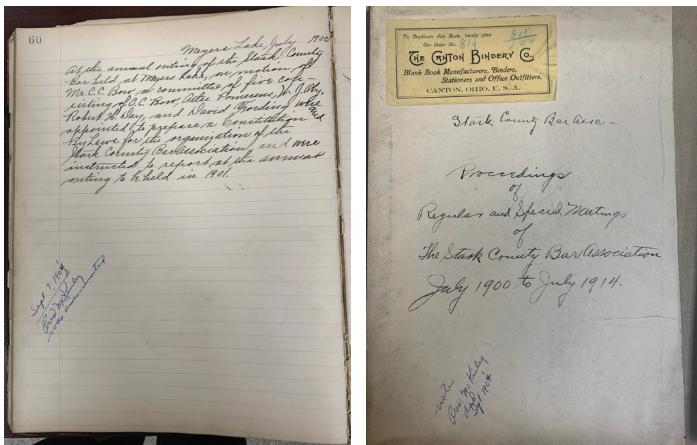 60
Meyers Lake, July 1900
At the annual outing of the Stark County
Bar held at Meyers Lake, on motion of
Mr. C.C. Bow, a committee of five con-
sisting of C.C. Bow, Atlee Pomerene, W. J. Aby,
Robert H. Day, and David Fording were
appointed to prepare a Constitution and
By Laws for the organization of the
Stark County Bar Association, and were
instructed to report at the annual
outing to be held in 1901.
Sept 7, 1901
Pres McKinley
was assassinated
To Duplicate this Book, kindly give
Our Order No. 814
THE CANTON BINDERY CO.
Blank Book Manufacturers, Binders,
Stationers and Office Outfitters.
CANTON, OHIO, U. S. A.
Stark County Bar Assc -
Proceedings
of
Regular and Special Meetings
of
The Stark County Bar Association
July 1900 to July 1914.
note
Pres McKinley
died
Sept 1901